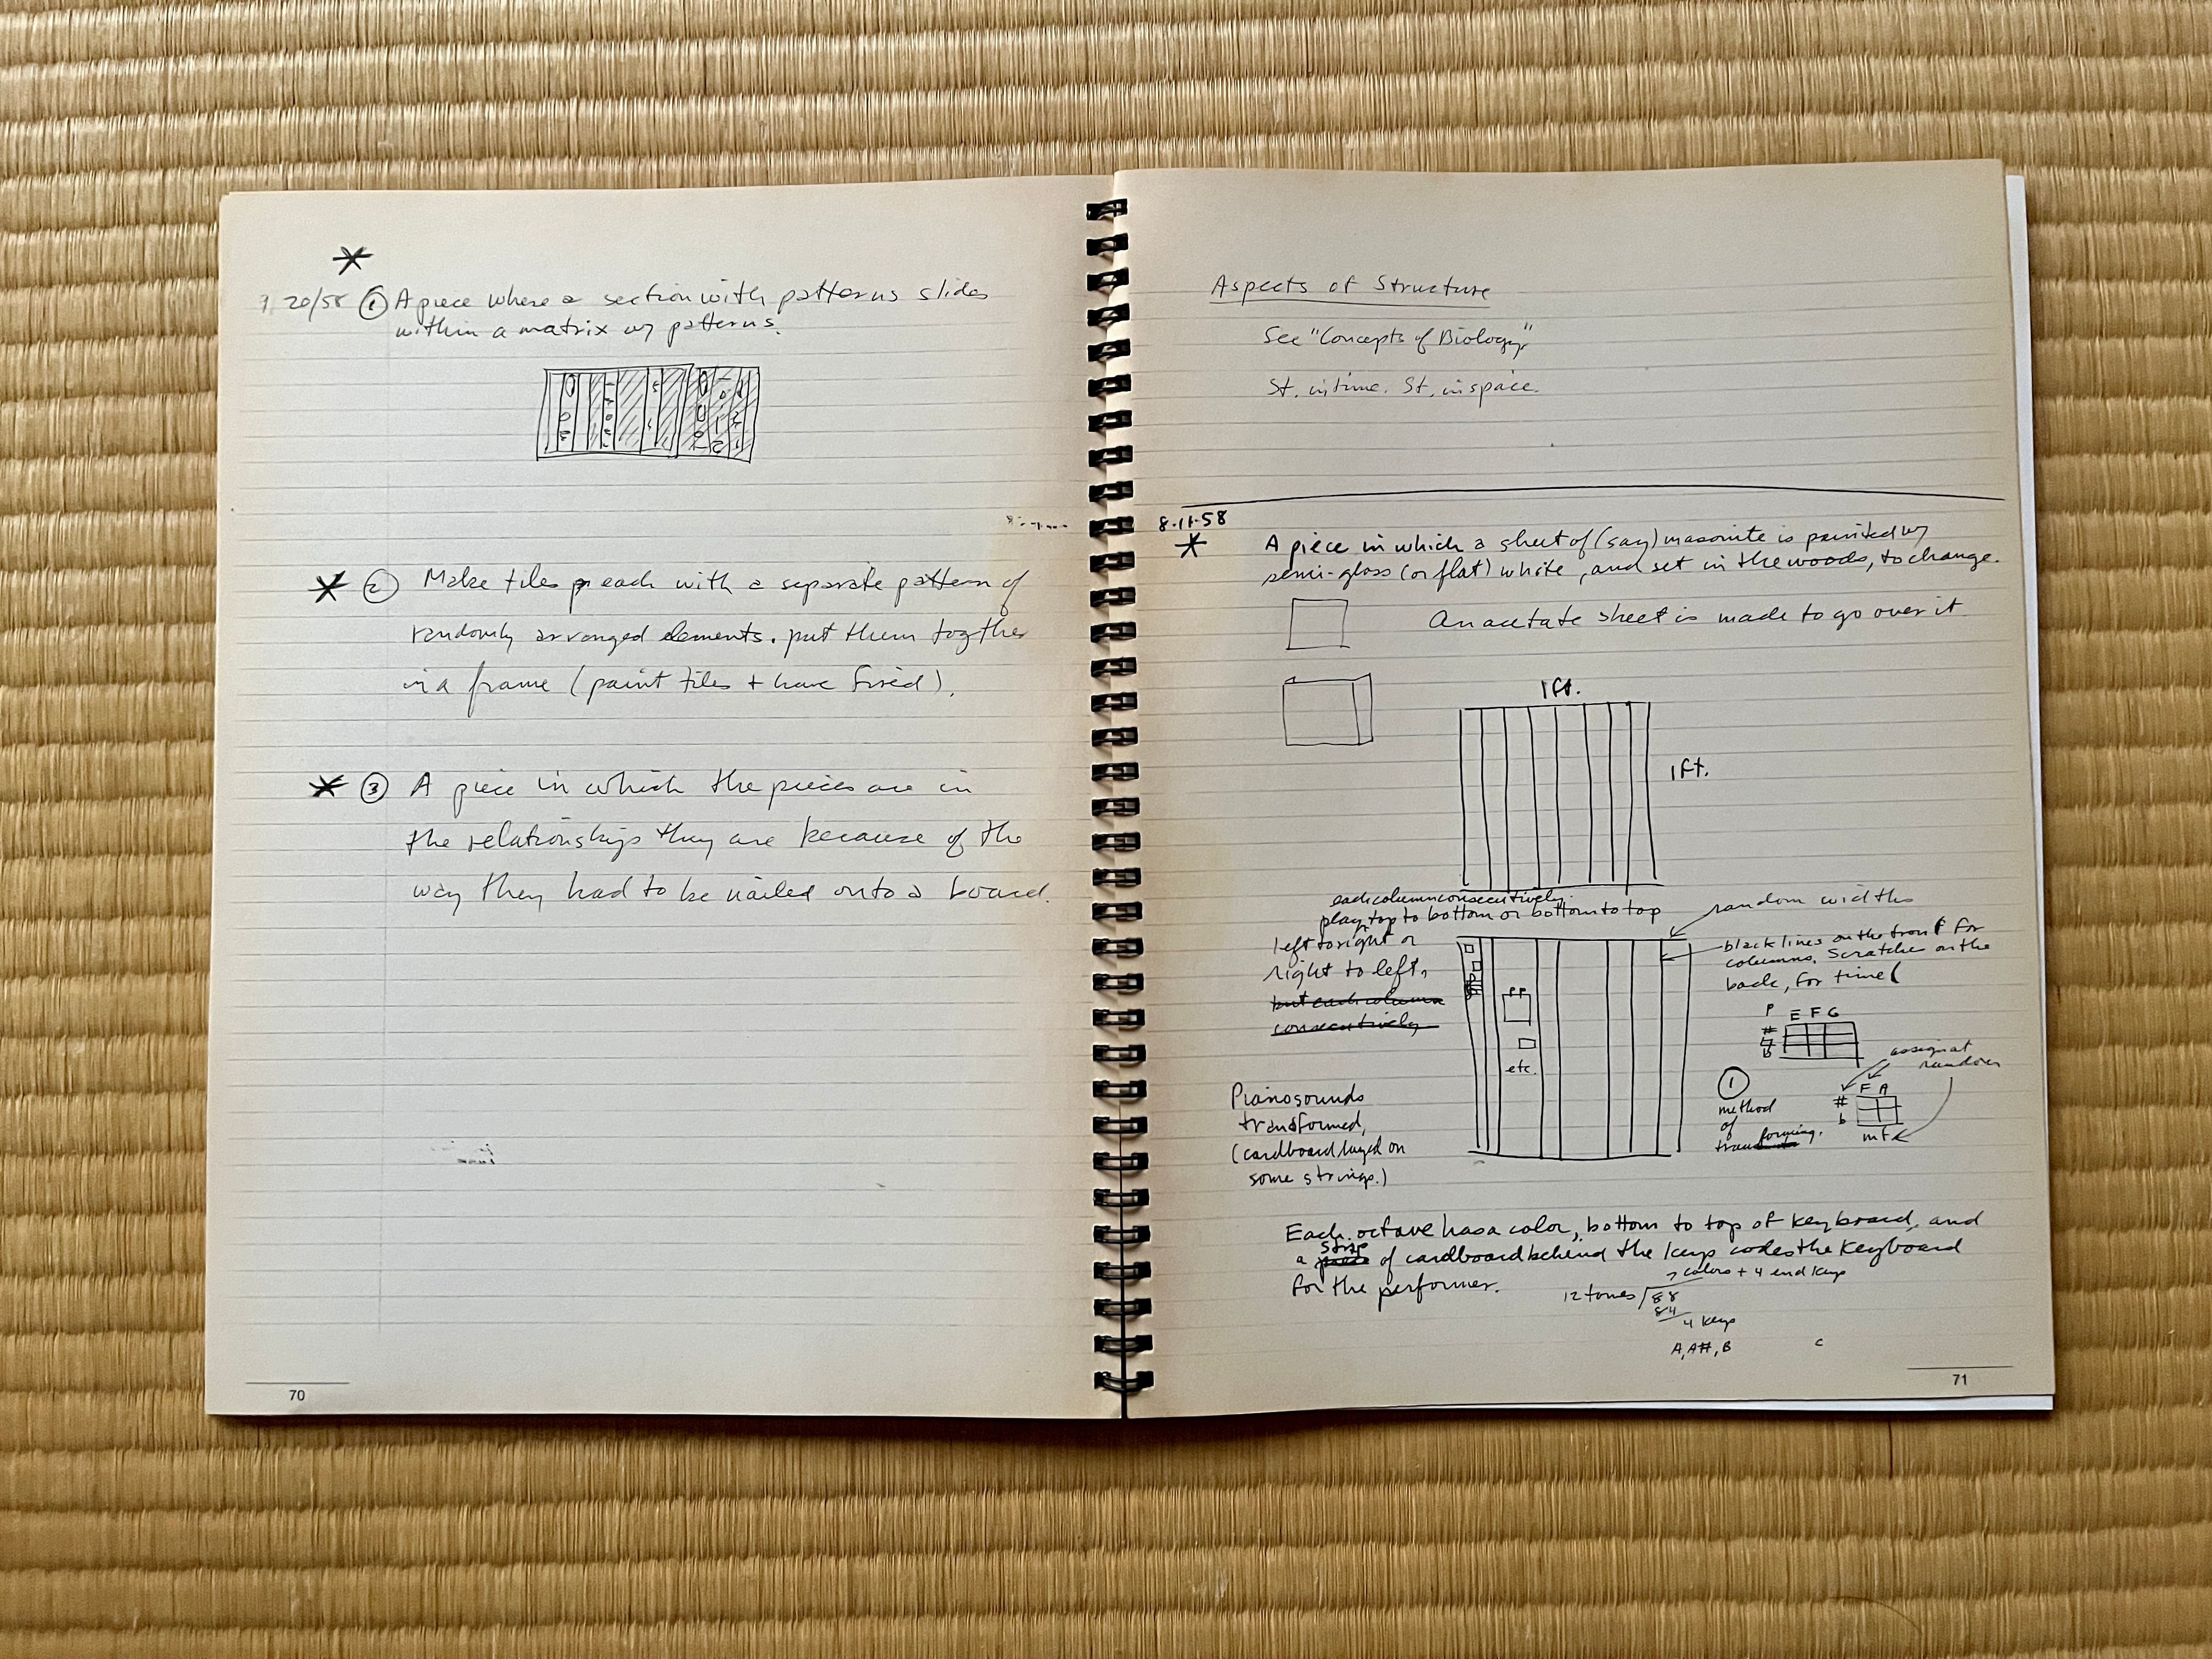 7/20/58 ① A piece where a section with patterns slides
within a matrix w/ patterns.
② Make tiles each with a separate pattern of
randomly arranged elements. put them together
in a frame (paint tiles + have fired).
③ A piece in which the pieces are in
the relationships they are because of the
way they had to be nailed onto a board.
70
Aspects of Structure
See "Concepts of Biology"
St. in time. St. in space.
8-11-58
A piece in which a sheet of (say) masonite is painted w/
semi-gloss (or flat) white, and set in the woods, to change.
An acetate sheet is made to go over it
1 ft.
1 ft.
each column consecutively.
play top to bottom or bottom to top
left to right or
right to left,
but each column
consecutively
random widths
black lines on the front for
columns. Scratches on the
back, for time(
PP
etc.
P
E F G
#
b
assign at
random
①
method
of
transforming.
F A
#
b
mf
Piano sounds
transformed,
(cardboard layed on
some strings.)
Each octave has a color, bottom to top of keyboard, and
a strip of cardboard behind the keys codes the keyboard
for the performer.
7 colors + 4 end keys
12 tones / 88
84
4 keys
A, A#, B
C
71